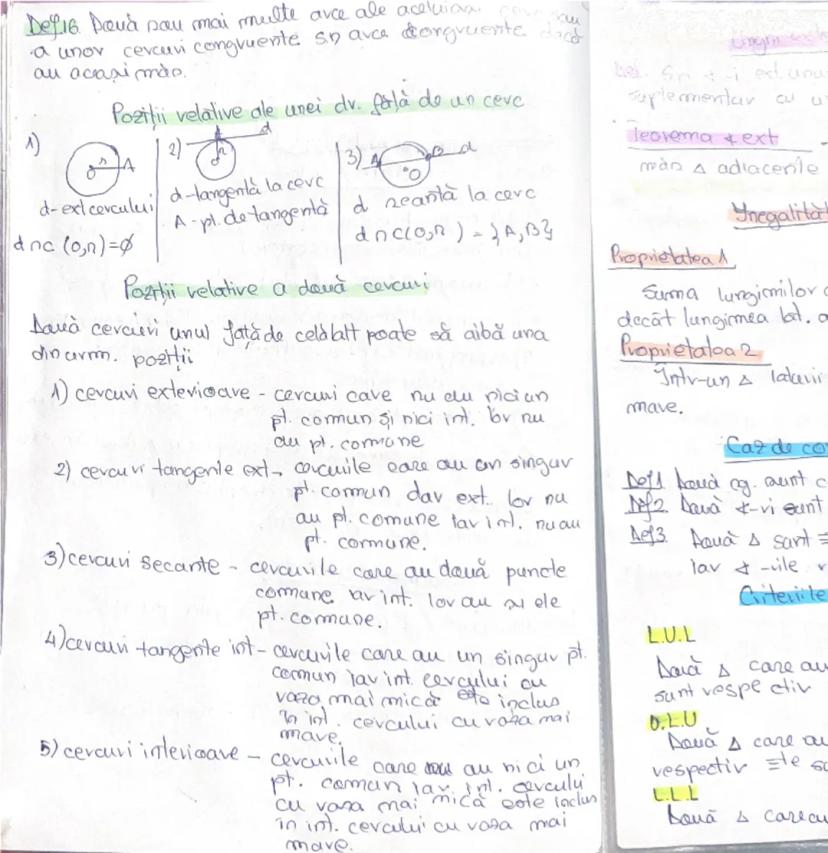 Def.16. Două sau mai multe arce ale aceluiași cerc sau
a unor cercuri congruente sn arce congruente dacă
au acași măs.
Poziții relative ale unei dr. față de un cerc
1)
O r A
d-ext cercului
d ∩ c (O,r) = ∅
2)
d
O r
d-tangentă la cerc
A - pt. de tangentă
3) A B d
O
d secantă la cerc
d ∩ c (O,r) = {A,B}
Poziții relative a două cercuri
Două cercuri unul față de celălalt poate să aibă una
din urm. poziții
1) cercuri exterioare - cercuri care nu au nici un
pt. comun și nici int. lor nu
au pt. comune
2) cercuri tangente ext - cercurile care au un singur
pt. comun dar ext. lor nu
au pt. comune iar int. nu au
pt. comune.
3) cercuri secante - cercurile care au două puncte
comune iar int. lor au și ele
pt. comune.
4) cercuri tangente int - cercurile care au un singur pt.
comun iar int. cercului cu
raza mai mică este inclus
în int. cercului cu raza mai
mare.
5) cercuri interioare - cercurile care au nici un
pt. comun iar int. cercului
cu raza mai mică este inclus
în int. cercului cu raza mai
mare.
suplementar cu u
Teorema ∢ ext
măs ∆ adiacente
Inegalităț
Proprietatea 1
Suma lungimilor
decât lungimea lat. a
Proprietatea 2
Într-un ∆ laturii
mare.
Caz de co
Def1. Două sg. sunt c
Def2. Două ∢-ri sunt
Def3. Două ∆ sunt ≡
iar ∢-ile
Criteriile
L.U.L
Două ∆ care au
sunt respectiv
U.L.U
Două ∆ care au
respectiv ≡te
L.L.L
Două ∆ care au